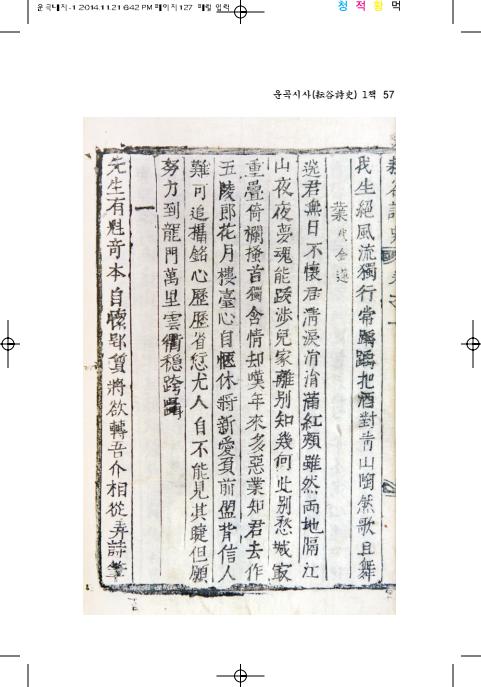 운곡내지-1 2014.11.21 6:42 PM 페이지127 매일 입력
청 적 황 먹
운곡시사(耘谷詩史) 1책 57
我生絕風流獨行常踽踽把酒對靑山陶然歌且舞
業
選君無日不懷君淸淚涓涓滿紅頰雖然兩地隔江
山夜夜夢魂能跋涉兒家離別知幾何此別愁城寂
重疊倚欄搔首獨含情却嘆年來多惡業知君去作
五陵郎花月樓臺心自愜休將新愛負前盟背信人
難可追攝銘心歷歷省愆尤人自不能見其睫但願
努力到龍門萬里雲衢穩跨躡
一
先生有魁奇本自懷鄙質將欲轉吾介相從弄詩筆